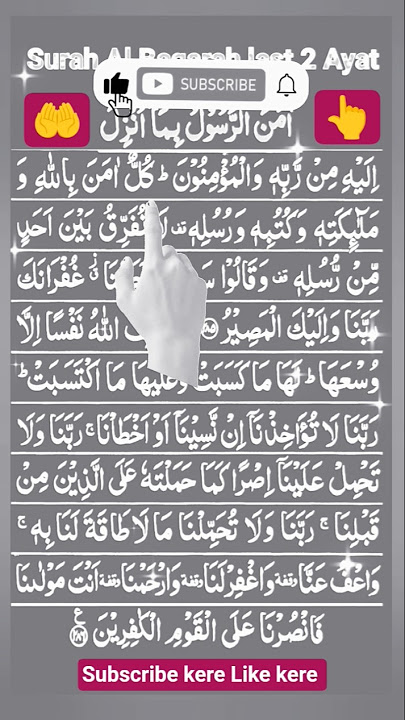 Surah Al Baqarah last 2 Ayat
SUBSCRIBE
اٰمَنَ الرَّسُوْلُ بِمَاۤ اُنْزِلَ
اِلَيْهِ مِنْ رَّبِّهٖ وَالْمُؤْمِنُوْنَ ؕ كُلٌّ اٰمَنَ بِاللّٰهِ وَ
مَلٰٓئِكَتِهٖ وَكُتُبِهٖ وَرُسُلِهٖ قف لَا نُفَرِّقُ بَيْنَ اَحَدٍ
مِّنْ رُّسُلِهٖ قف وَقَالُوْا غُفْرَانَكَ
رَبَّنَا وَاِلَيْكَ الْمَصِيْرُ اللّٰهُ نَفْسًا اِلَّا
وُسْعَهَا ؕ لَهَا مَا كَسَبَتْ وَعَلَيْهَا مَا اكْتَسَبَتْ ؕ
رَبَّنَا لَا تُؤَاخِذْنَاۤ اِنْ نَّسِيْنَاۤ اَوْ اَخْطَاْنَا ۚ رَبَّنَا وَلَا
تَحْمِلْ عَلَيْنَاۤ اِصْرًا كَمَا حَمَلْتَهٗ عَلَى الَّذِيْنَ مِنْ
قَبْلِنَا ۚ رَبَّنَا وَلَا تُحَمِّلْنَا مَا لَا طَاقَةَ لَنَا بِهٖ ۚ
وَاعْفُ عَنَّا وقفة وَاغْفِرْ لَنَا وقفة وَارْحَمْنَا وقفة اَنْتَ مَوْلٰىنَا
فَانْصُرْنَا عَلَى الْقَوْمِ الْكٰفِرِيْنَ ﴿۲۸۶﴾ ع
Subscribe kere Like kere